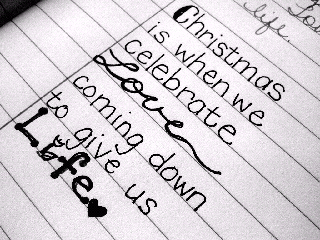 Christmas
is when we
celebrate
Love
coming down
to give us
Life
life.